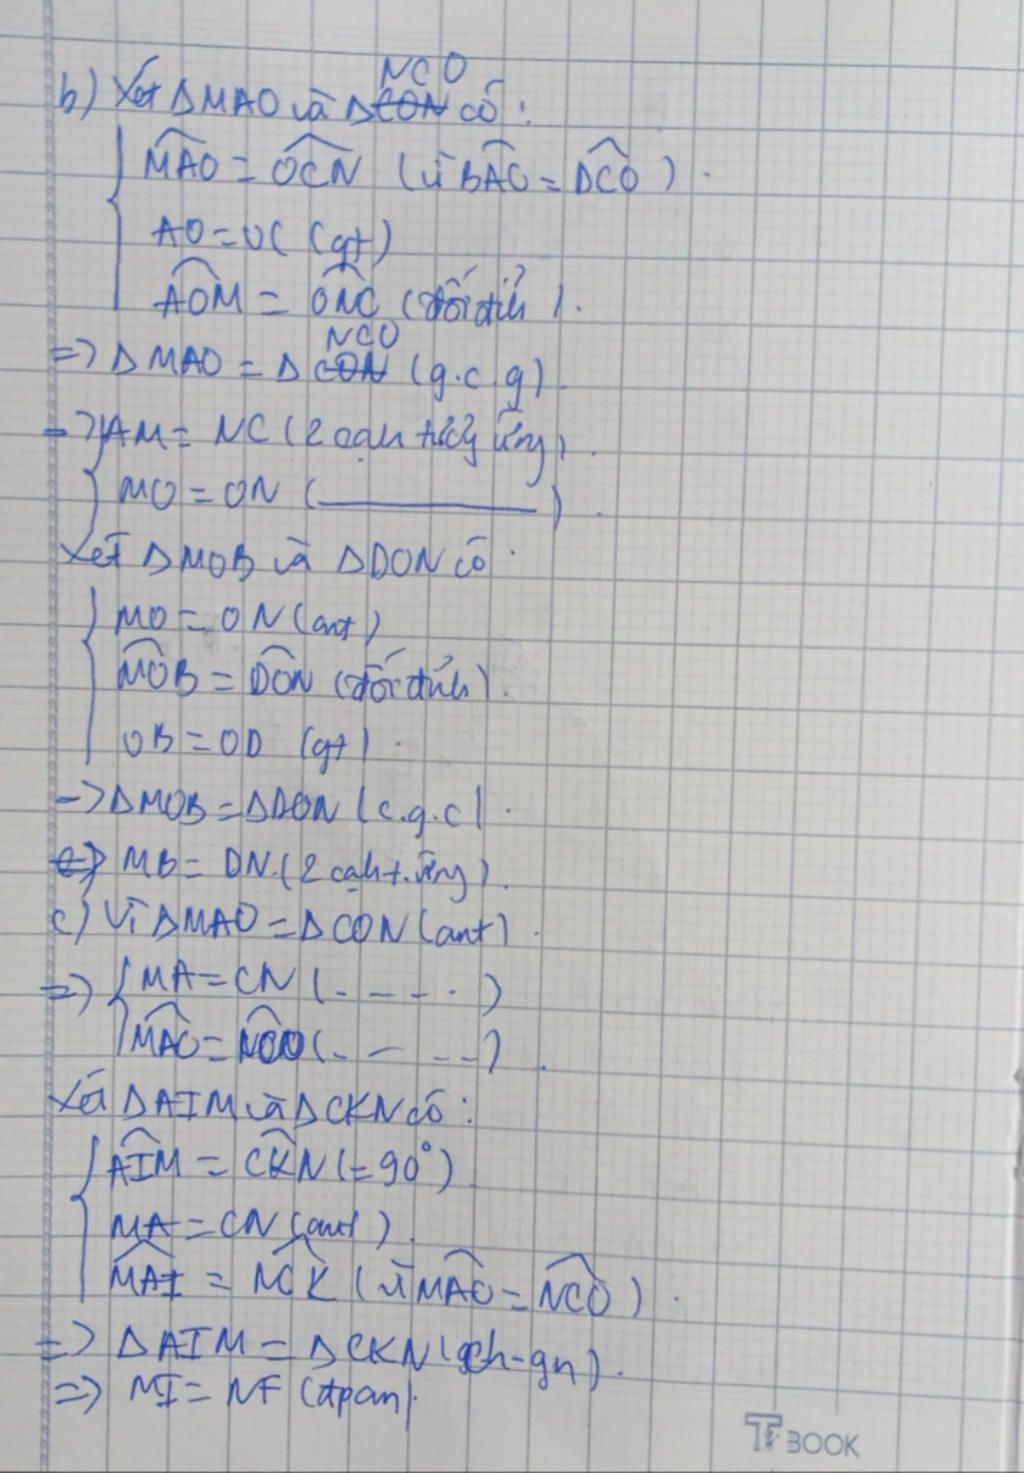 NCO
b) Xét ΔMAO và ΔCON có:
MAO = OCN (vì BAC = DCO).
AO = OC (gt)
AOM = ONC (đối đỉnh).
NCO
=> Δ MAO = Δ CON (g.c.g)
=> AM = NC (2 cạnh tương ứng).
MO = ON ( ).
Xét ΔMOB và ΔDON có
MO = ON (cmt)
MOB = DON (đối đỉnh).
OB = OD (gt).
-> ΔMOB = ΔDON (c.g.c).
=> MB = DN. (2 cạnh t. ứng).
c) Vì ΔMAO = ΔCON (cmt).
=> MA = CN (- - - -)
MAO = NCO (- - - -).
Xét ΔAIM và ΔCKN có:
AIM = CKN (= 90°)
MA = CN (cmt).
MAI = NCK (vì MAO = NCO).
=> ΔAIM = ΔCKN (ch-gn).
=> MI = NF (đpcm).
TF BOOK